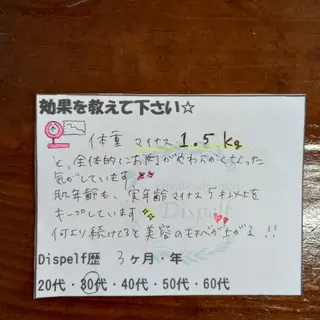 効果を教えて下さい☆
体重 マイナス 1.5 kg
と、全体的にお肉がやわらかくなった
気がしています。
肌年齢も、実年齢マイナス5才以上を
キープしています。
何より続けてると美容のモチベが上がる!!
Dispelf歴 3ヶ月・年
20代・30代・40代・50代・60代
Dispelf